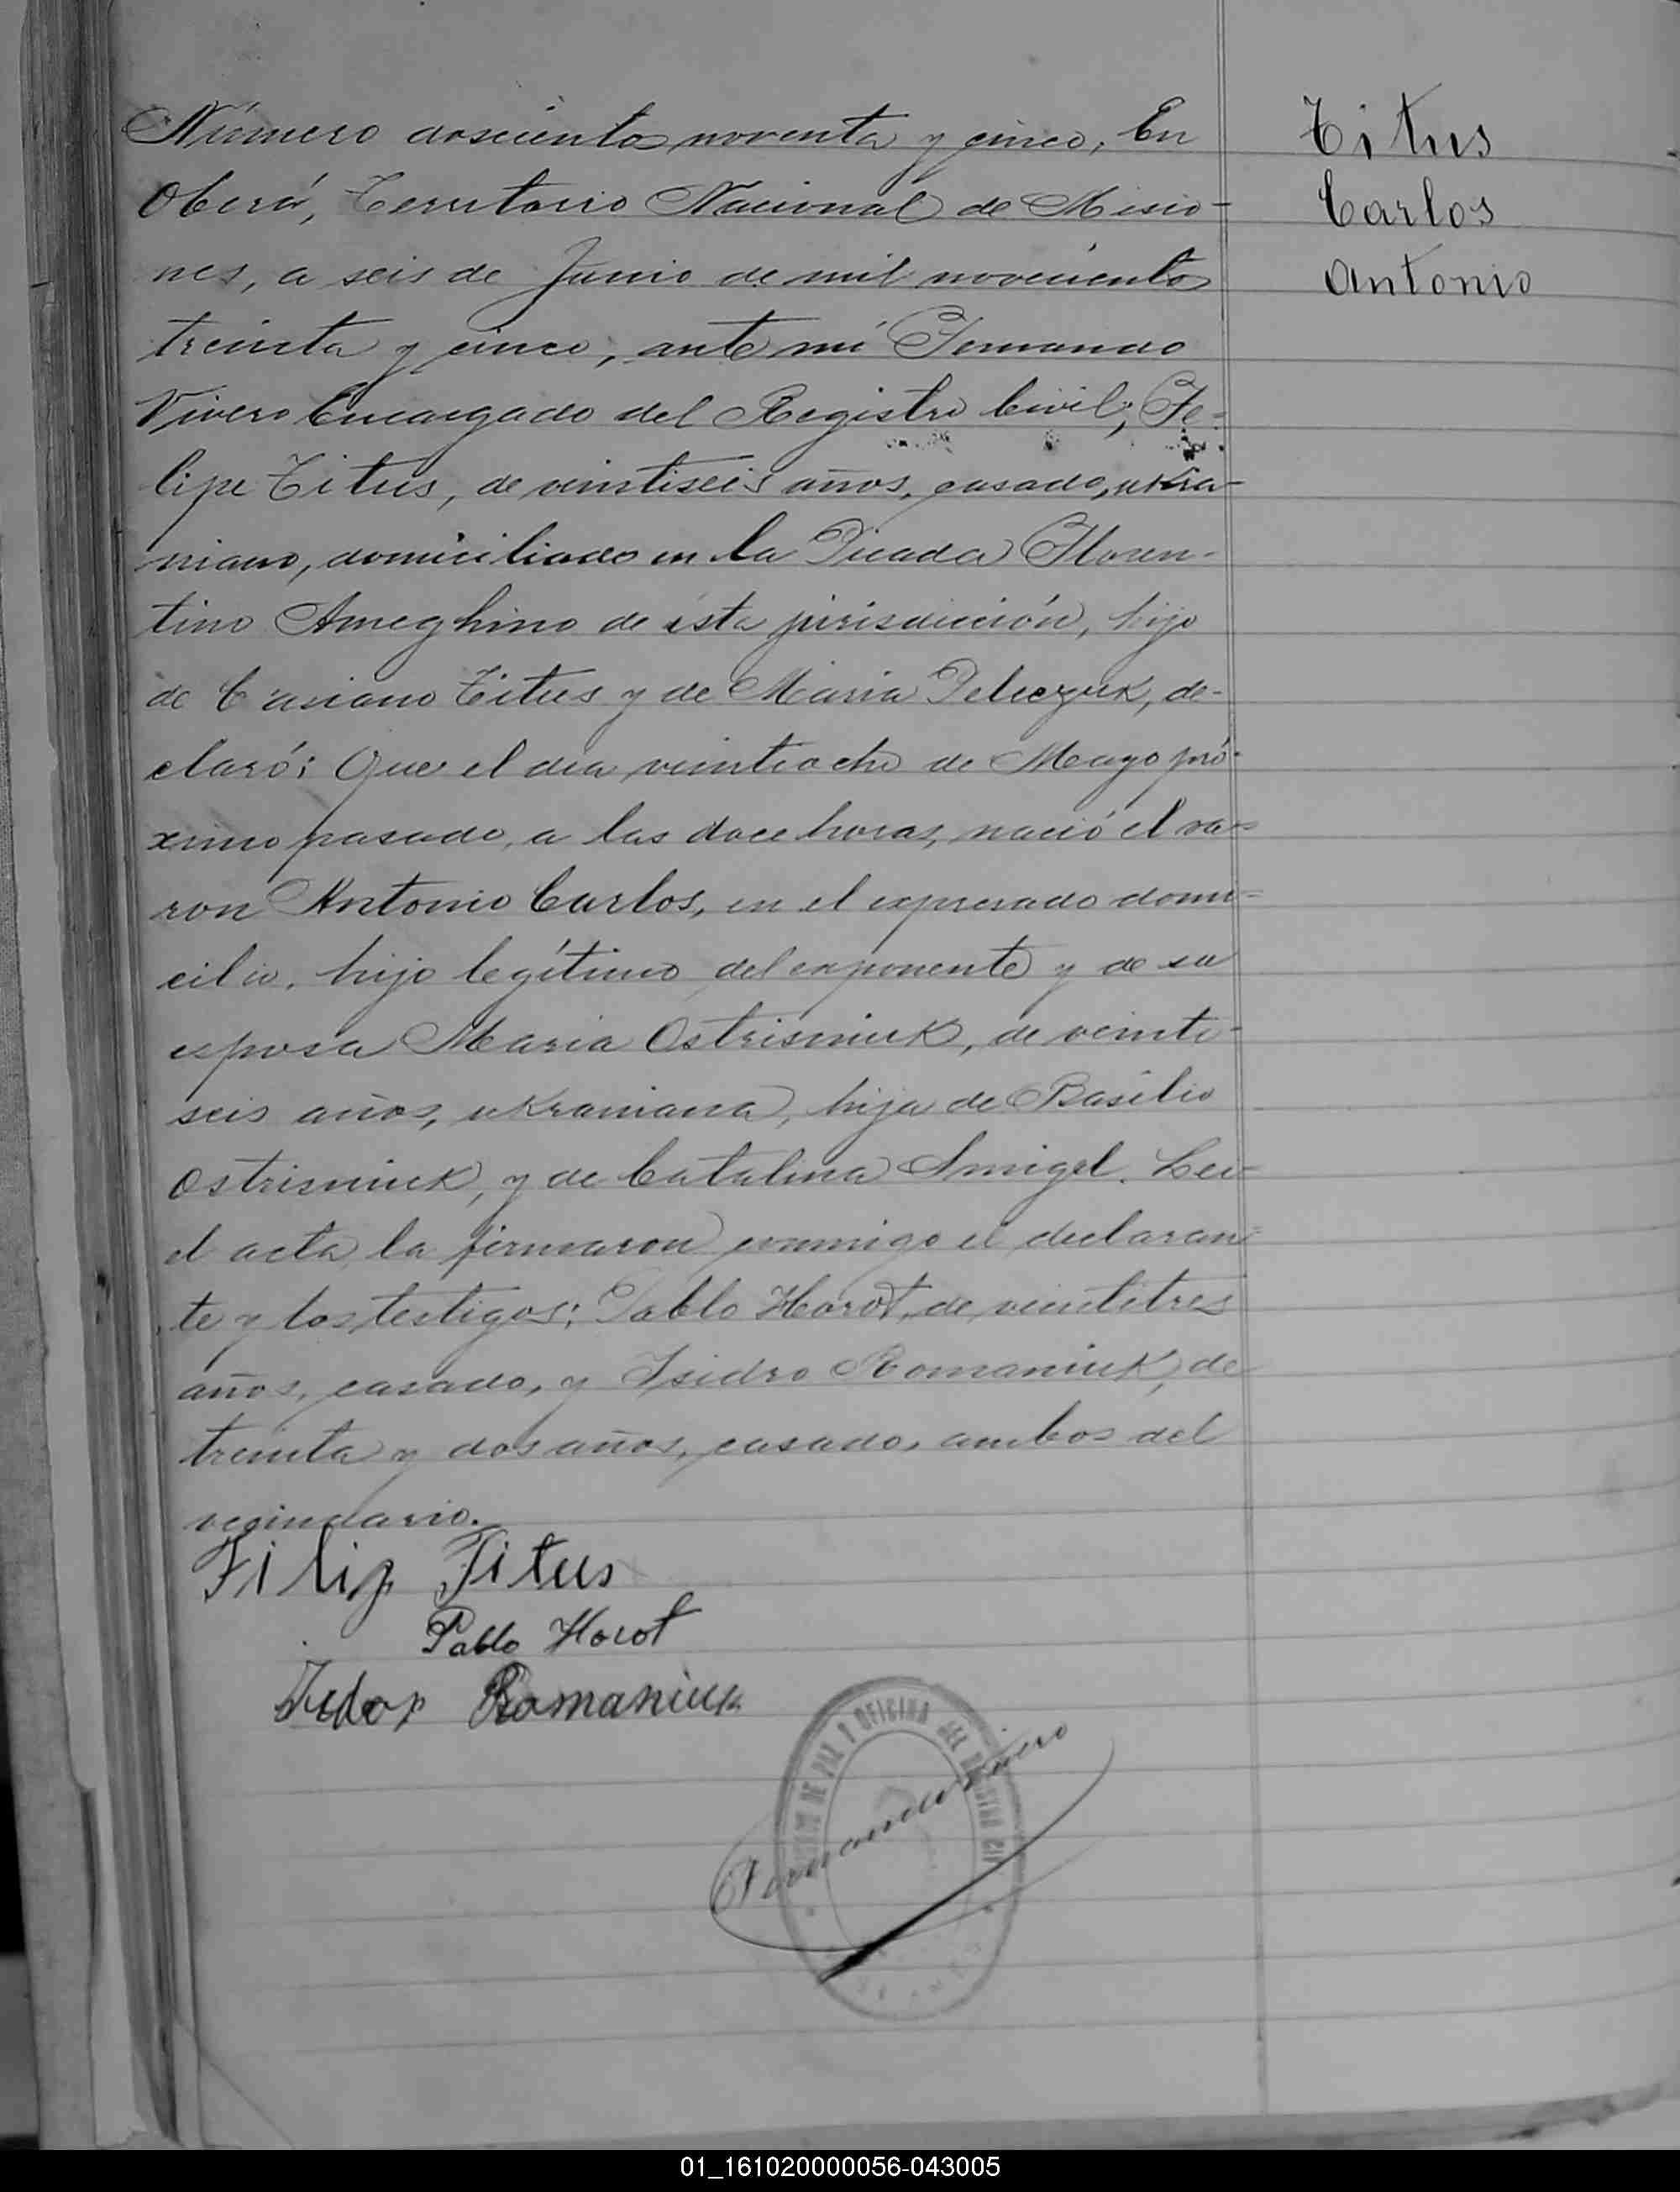 Número doscientos noventa y cinco, En
Oberá, Territorio Nacional de Misio-
nes, a seis de Junio de mil novecientos
treinta y cinco, ante mi Fernando
Vivero Encargado del Registro Civil; Fe-
lipe Titus, de veintiseis años, casado, ukra-
niano, domiciliado en la Picada Floren-
tino Ameghino de esta jurisdicción, hijo
de Casiano Titus y de Maria Peluczuk, de-
claró: Que el dia veintiocho de Mayo pró-
ximo pasado, a las doce horas, nació el va-
ron Antonio Carlos, en el expresado domi-
cilio, hijo legítimo del exponente y de su
esposa Maria Ostrisniuk, de veinti-
seis años, ukraniana, hija de Basilio
Ostrisniuk, y de Catalina Smigel. Lei-
el acta, la firmaron conmigo el declaran-
te y los testigos: Pablo Horot, de veintitres
años, casado, y Isidro Romaniuk, de
treinta y dos años, casado, ambos del
vecindario.
Filip Titus
Pablo Horot
Romaniuk
Fernando Vivero
DE PAZ Y OFICINA DEL REGISTRO CIVIL
Titus
Carlos
Antonio
01_161020000056-043005